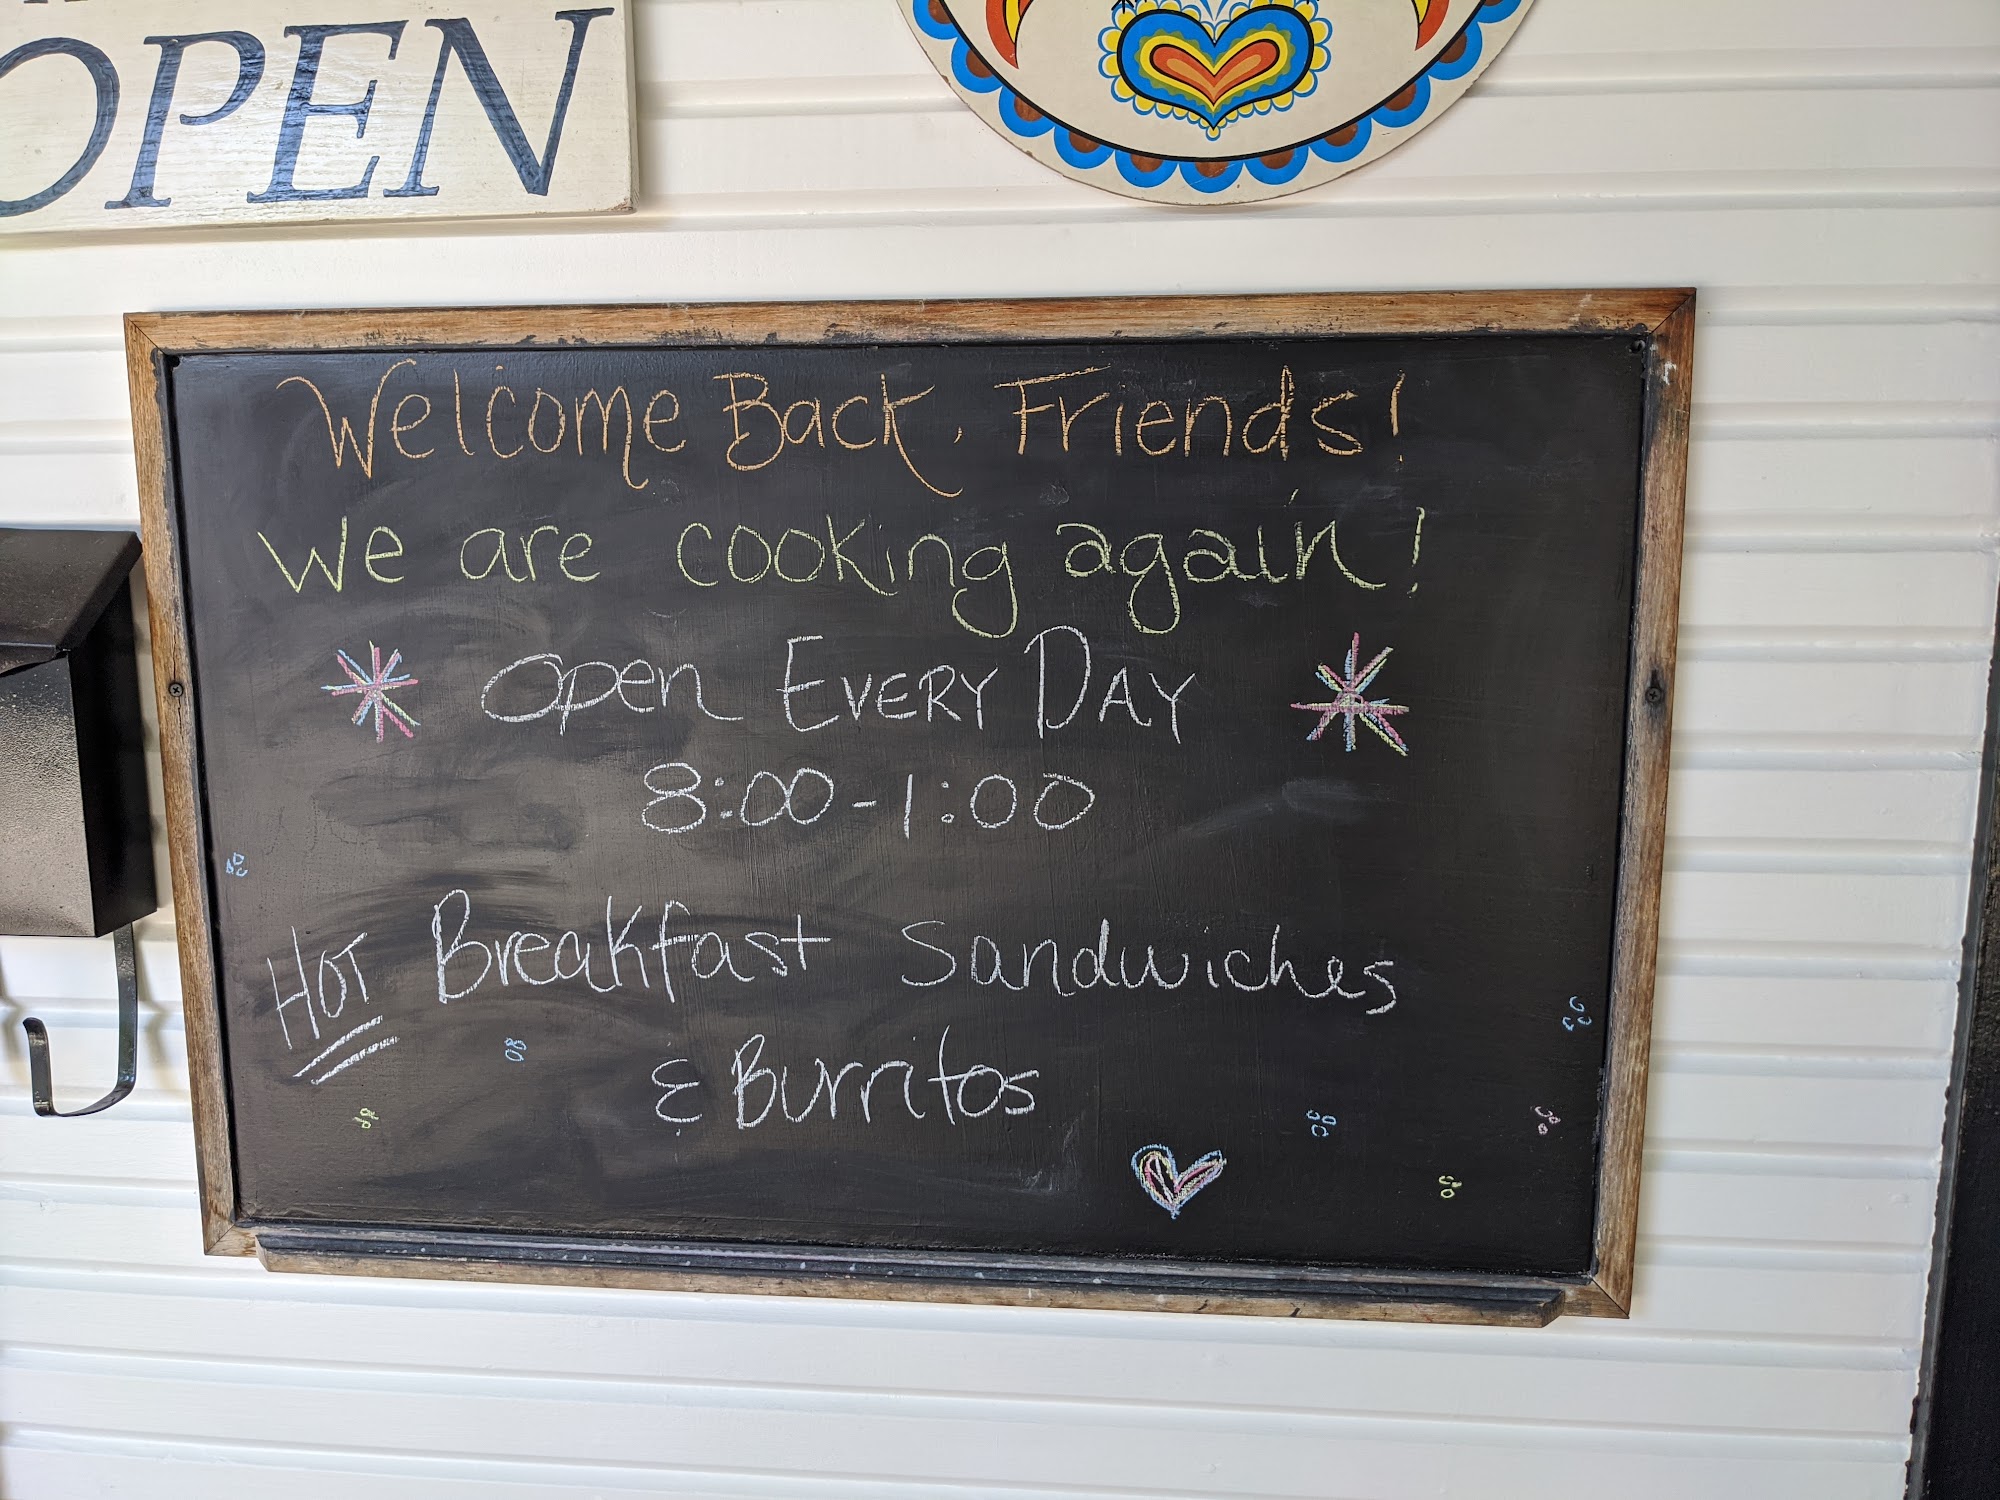 OPEN
Welcome Back, Friends!
We are cooking again!
Open Every Day
8:00-1:00
HOT Breakfast Sandwiches
& Burritos